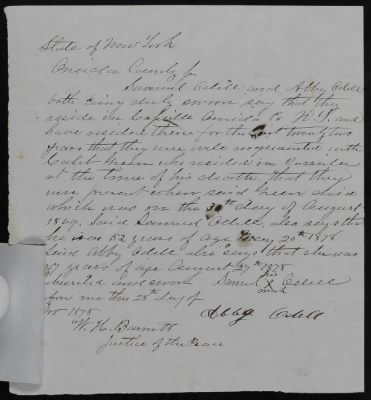 State of New York
Oneida County
Samuel Odell and Abby Odell
both being duly sworn say that they
reside in Oneida Co N.Y. and
have resided there for the last twenty two
years that they were well acquainted with
Caleb Green who resided in
at the time of his death, that they
were present when said Green died
which was on the 30th day of August
1869. Said Samuel Odell also says that
he was 52 years of age 20th 1878
Said Abby Odell also says that she was
years of age August 27th 1878
and sworn Samuel his X mark Odell
me this 28th day of
1878 Abby Odell
W. H. Barnett
Justice of the Peace